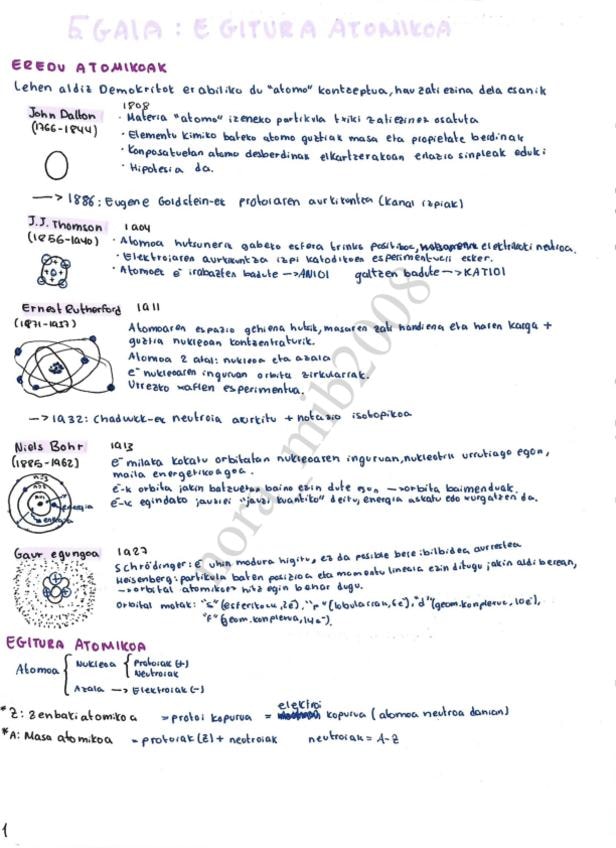 5.GAIA: EGITURA ATOMIKOA
EREDU ATOMIKOAK
Lehen aldiz Demokritok erabiliko du "atomo" kontzeptua, hau zatiezina dela esanik
John Dalton 1808
(1766-1844) · Materia "atomo" izeneko partikula txiki zatiezinez osatuta
· Elementu kimiko bateko atomo guztiak masa eta propietate berdinak
· Konposatuetan atomo desberdinak elkartzerakoan erlazio sinpleak eduki
· Hipotesia da.
—> 1886: Eugene Goldstein-ek protoiaren aurkikuntza (kanal izpiak)
J.J. Thomson 1904
(1856-1940) · Atomoa hutsunerik gabeko esfera trinko positiboa, elektrikoki neutroa.
· Elektroiaren aurkikuntza izpi katodikoen esperimentueri esker.
· Atomoek e⁻ irabazten badute —> ANIOI galtzen badute —> KATIOI
Ernest Rutherford 1911
(1871-1937) Atomoaren espazio gehiena hutsik, masaren zati handiena eta haren karga +
guztia nukleoan kontzentraturik.
Atomoa 2 atal: nukleoa eta azala
e⁻ nukleoaren inguruan orbita zirkularrak.
Urrezko xaflen esperimentua.
—> 1932: Chadwick-ek neutroia aurkitu + notazio isotopikoa
Niels Bohr 1913
(1885-1962) e⁻ mailaka kokatu orbitatan nukleoaren inguruan, nukleotik urrutiago egon,
maila energetikoagoa.
e⁻-k orbita jakin batzuetan baino ezin dute egon —> orbita baimenduak.
e⁻-k egindako jauziei "jauzi kuantiko" deitu, energia askatu edo xurgatzen da.
n=3
n=2
n=1
energia
energia
Gaur egungoa 1927
Schrödinger: e⁻ uhin modura higitu, ez da posible bere ibilbidea aurrestea
Heisenberg: partikula baten posizioa eta momentu lineala ezin ditugu jakin aldi berean,
—> orbital atomikoez hitz egin behar dugu.
Orbital motak: "s" (esferikoa, 2e⁻), "p" (lobularrak, 6e⁻), "d" (geom. konplexua, 10e⁻),
"f" (geom. konplexua, 14e⁻)
EGITURA ATOMIKOA
Atomoa { Nukleoa { Protoiak (+)
Neutroiak
Azala —> Elektroiak (-)
* Z: Zenbaki atomikoa = protoi kopurua = elektroi kopurua (atomoa neutroa danian)
* A: Masa atomikoa = protoiak (Z) + neutroiak neutroiak = A-Z
1
nora_mib2008